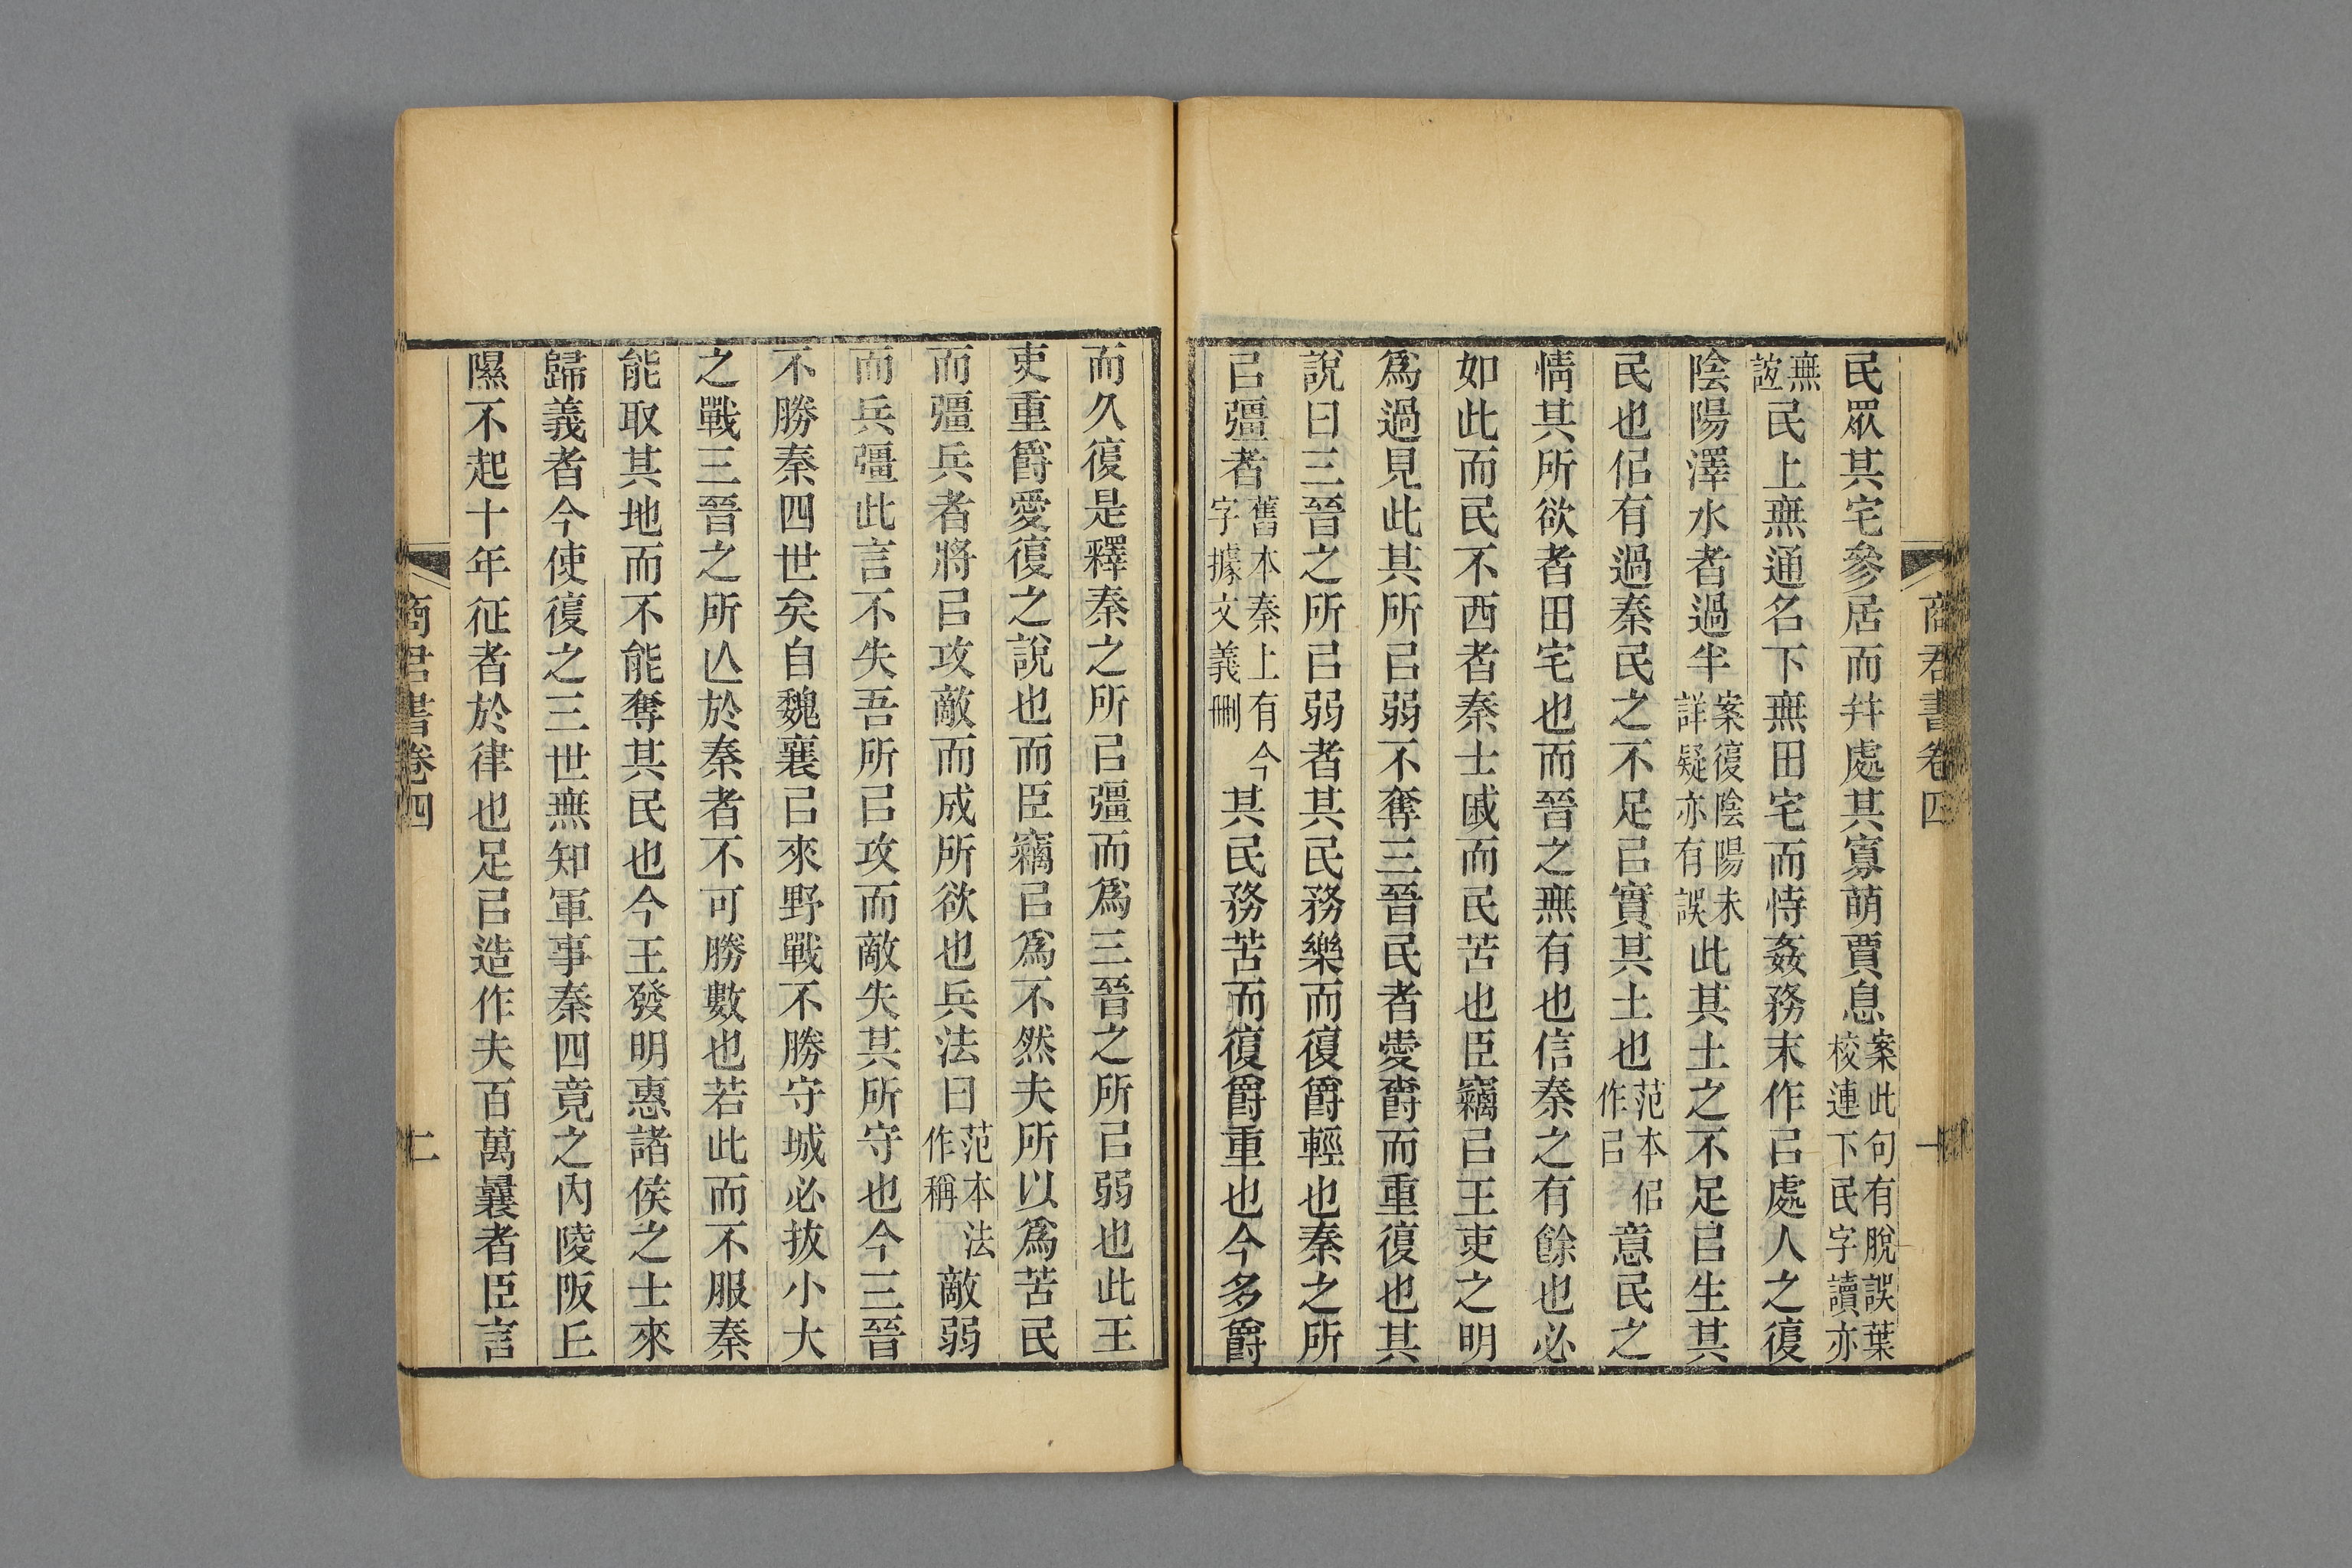 商君書卷四
一
民眾其宅參居而幷處其寡萌賈息案此句有脫誤葉校連下民字讀亦
無說民上無通名下無田宅而恃姦務末作㠯處人之復
陰陽澤水者過半案復陰陽未詳疑亦有誤此其土之不足㠯生其
民也佀有過秦民之不足㠯實其土也范本佀作㠯意民之
情其所欲者田宅也而晉之無有也信秦之有餘也必
如此而民不西者秦士戚而民苦也臣竊㠯王吏之明
爲過見此其所㠯弱不奪三晉民者愛爵而重復也其
說曰三晉之所㠯弱者其民務樂而復爵輕也秦之所
㠯彊者舊本秦上有今字據文義刪其民務苦而復爵重也今多爵
而久復是釋秦之所㠯彊而爲三晉之所㠯弱也此王
吏重爵愛復之說也而臣竊㠯爲不然夫所以爲苦民
而彊兵者將㠯攻敵而成所欲也兵法曰范本法作稱敵弱
而兵彊此言不失吾所㠯攻而敵失其所守也今三晉
不勝秦四世矣自魏襄㠯來野戰不勝守城必拔小大
之戰三晉之所亾於秦者不可勝數也若此而不服秦
能取其地而不能奪其民也今王發明惠諸侯之士來
歸義者今使復之三世無知軍事秦四竟之內陵阪丘
隰不起十年征者於律也足㠯造作夫百萬曩者臣言
商君書卷四
二